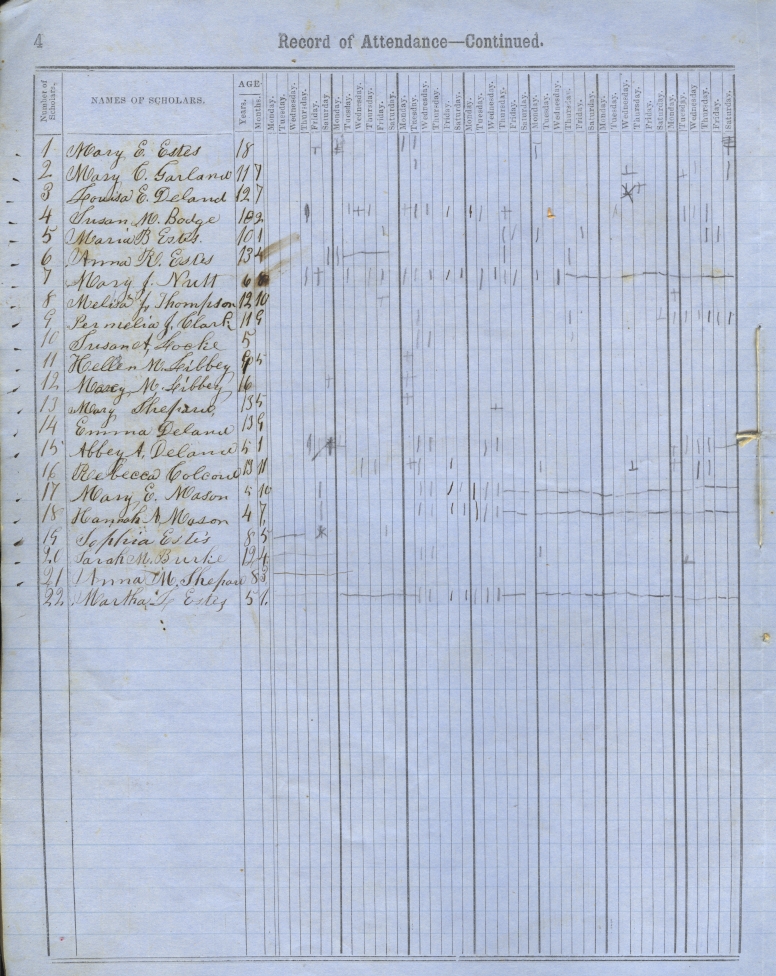 4
Record of Attendance—Continued.
Number of Scholars. NAMES OF SCHOLARS. AGE Years. Months. Monday. Tuesday. Wednesday. Thursday. Friday. Saturday. Monday. Tuesday. Wednesday. Thursday. Friday. Saturday. Monday. Tuesday. Wednesday. Thursday. Friday. Saturday. Monday. Tuesday. Wednesday. Thursday. Friday. Saturday. Monday. Tuesday. Wednesday. Thursday. Friday. Saturday. Monday. Tuesday. Wednesday. Thursday. Friday. Saturday. Monday. Tuesday. Wednesday. Thursday. Friday. Saturday.
1 Mary E. Estes 18
2 Mary C. Garland 11 7
3 Louisa E. Deland 12 7
4 Susan M. Bodge
5 Maria B Estes. 10 1
6 Anna R. Estes 13 4
7 Mary J. Nutt 6
8 Melisa J. Thompson 12 10
9 Permelia J. Clark 11 9
10 Susan A, Locke 5
11 Hellen M. Libbey 5
12 M. Libbey 16
13 Mary Shepard, 13 5
14 Emma Deland 13 9
15 Abbey A. Deland 5 1
16 Rebecca Colcord 13 11
17 Mary E. Mason 5 10
18 Hannah A Mason 4 7
19 Sophia Estes 8 5
20 Sarah M. Burke 12 4
21 Anna M. Shepard 8
22. Martha Estes 5 1.